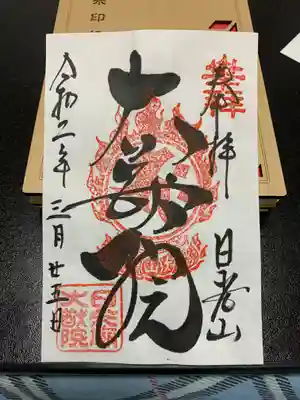 奉拝
日光山
大猷院
令和二年三月廿五日
日光山
大猷院